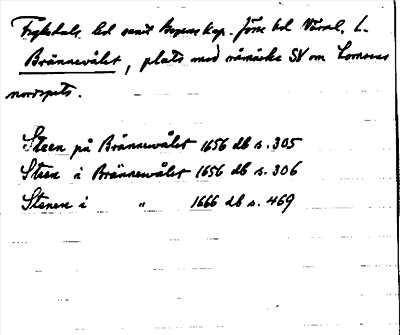 Fryksdals hd samt Bogens kap. Före hd Värml. L.
Brännevålet, plats med råmärke SV om Lomsens
nordspets.
Steen på Brännewålet 1656 db s. 305
Steen i Brännewålet 1656 db s. 306
Stenen i " 1666 db s. 469